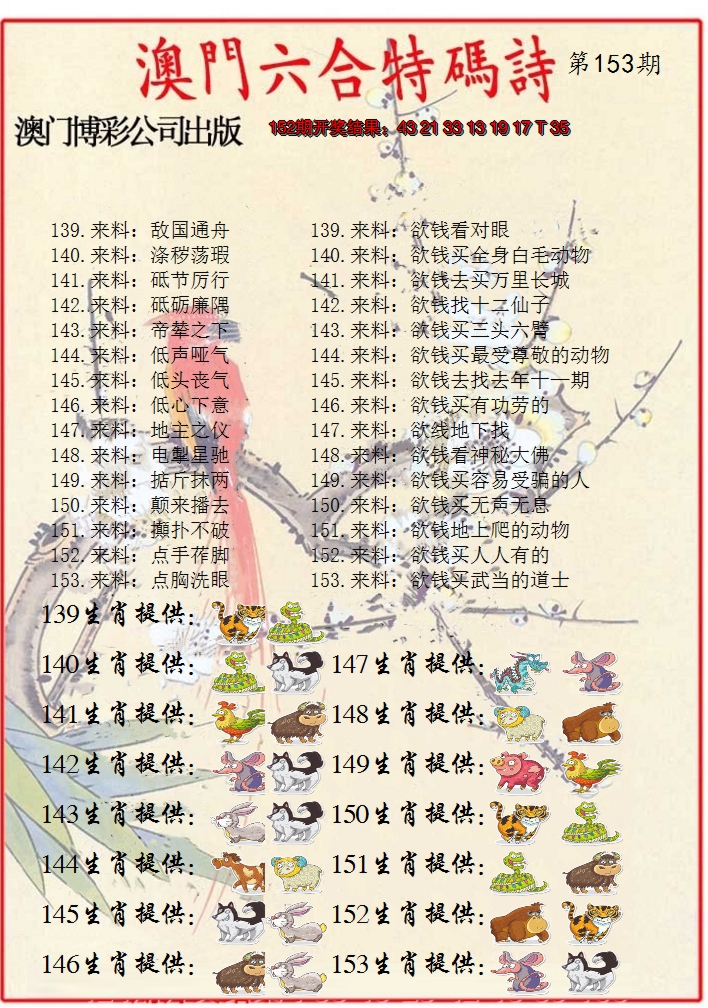 澳門六合特碼詩 第153期
澳门博彩公司出版 152期开奖结果：43 21 33 13 19 17 T 35
139.来料：敌国通舟 139.来料：欲钱看对眼
140.来料：涤秽荡瑕 140.来料：欲钱买全身白毛动物
141.来料：砥节厉行 141.来料：欲钱去买万里长城
142.来料：砥砺廉隅 142.来料：欲钱找十二仙子
143.来料：帝辇之下 143.来料：欲钱买三头六臂
144.来料：低声哑气 144.来料：欲钱买最受尊敬的动物
145.来料：低头丧气 145.来料：欲钱去找去年十一期
146.来料：低心下意 146.来料：欲钱买有功劳的
147.来料：地主之仪 147.来料：欲线地下找
148.来料：电掣星驰 148.来料：欲钱看神秘大佛
149.来料：掂斤抹两 149.来料：欲钱买容易受骗的人
150.来料：颠来播去 150.来料：欲钱买无声无息
151.来料：攧扑不破 151.来料：欲钱地上爬的动物
152.来料：点手莋脚 152.来料：欲钱买人人有的
153.来料：点胸洗眼 153.来料：欲钱买武当的道士
139生肖提供：
140生肖提供： 147生肖提供：
141生肖提供： 148生肖提供：
142生肖提供： 149生肖提供：
143生肖提供： 150生肖提供：
144生肖提供： 151生肖提供：
145生肖提供： 152生肖提供：
146生肖提供： 153生肖提供：